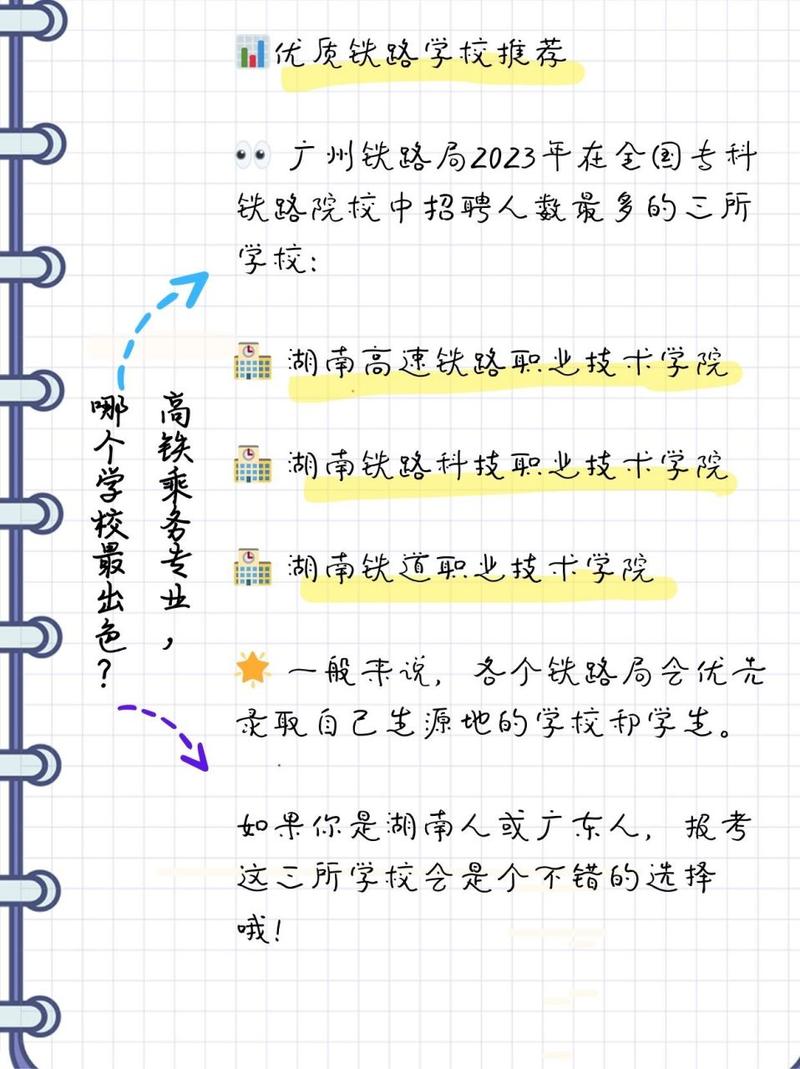 📊优质铁路学校推荐
👀 广州铁路局2023年在全国专科
铁路院校中招聘人数最多的三所
学校：
🏫 湖南高速铁路职业技术学院
🏫 湖南铁路科技职业技术学院
🏫 湖南铁道职业技术学院
🌟 一般来说，各个铁路局会优先
录取自己生源地的学校和学生。
如果你是湖南人或广东人，报考
这三所学校会是个不错的选择
哦！
高铁乘务专业，
哪个学校最出色？